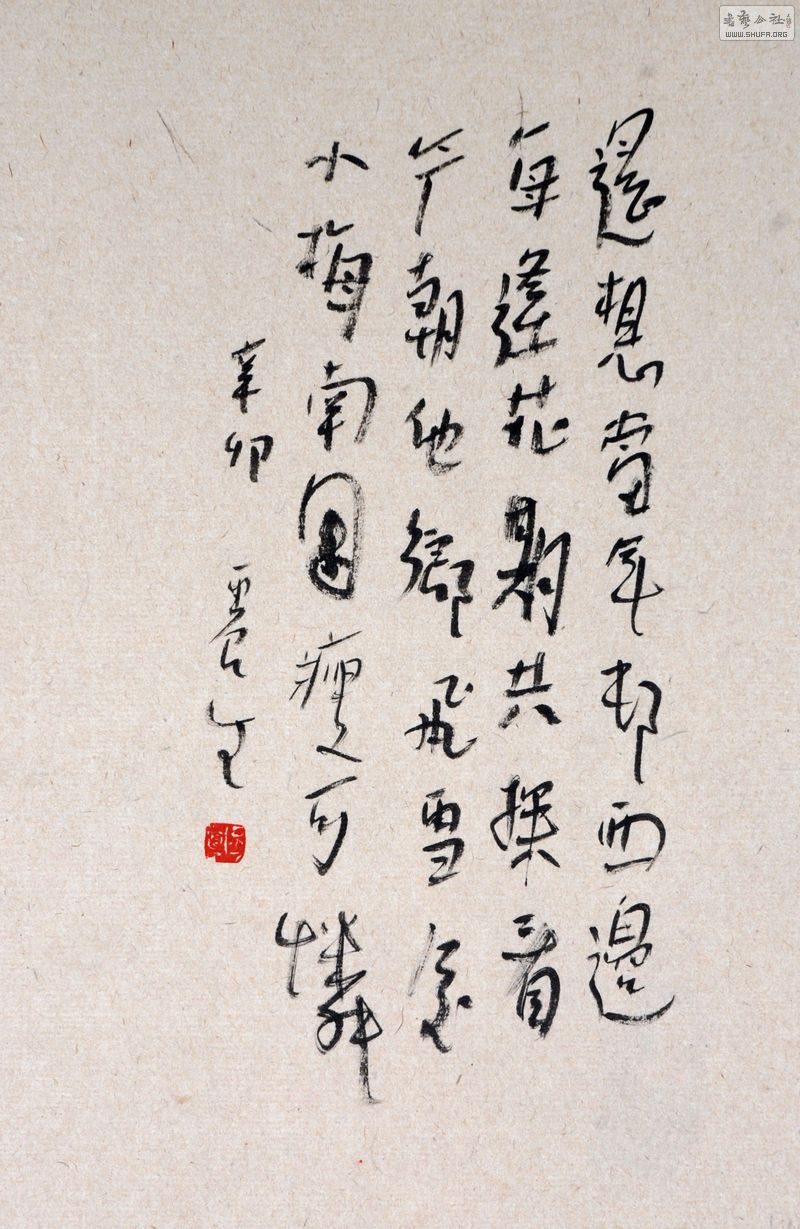 還想當年邨西邊
每逢花期共探看
今朝他鄉飛雪
小梅南瘦可憐
辛卯
生
書藝公社
WWW.SHUFA.ORG